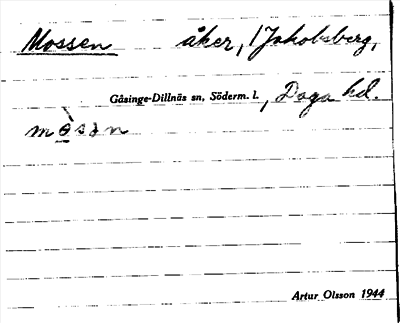 Mossen åker, /Jakobsberg,
Gåsinge-Dillnäs sn, Söderm. l., Daga hd.
mòsən
Artur Olsson 1944